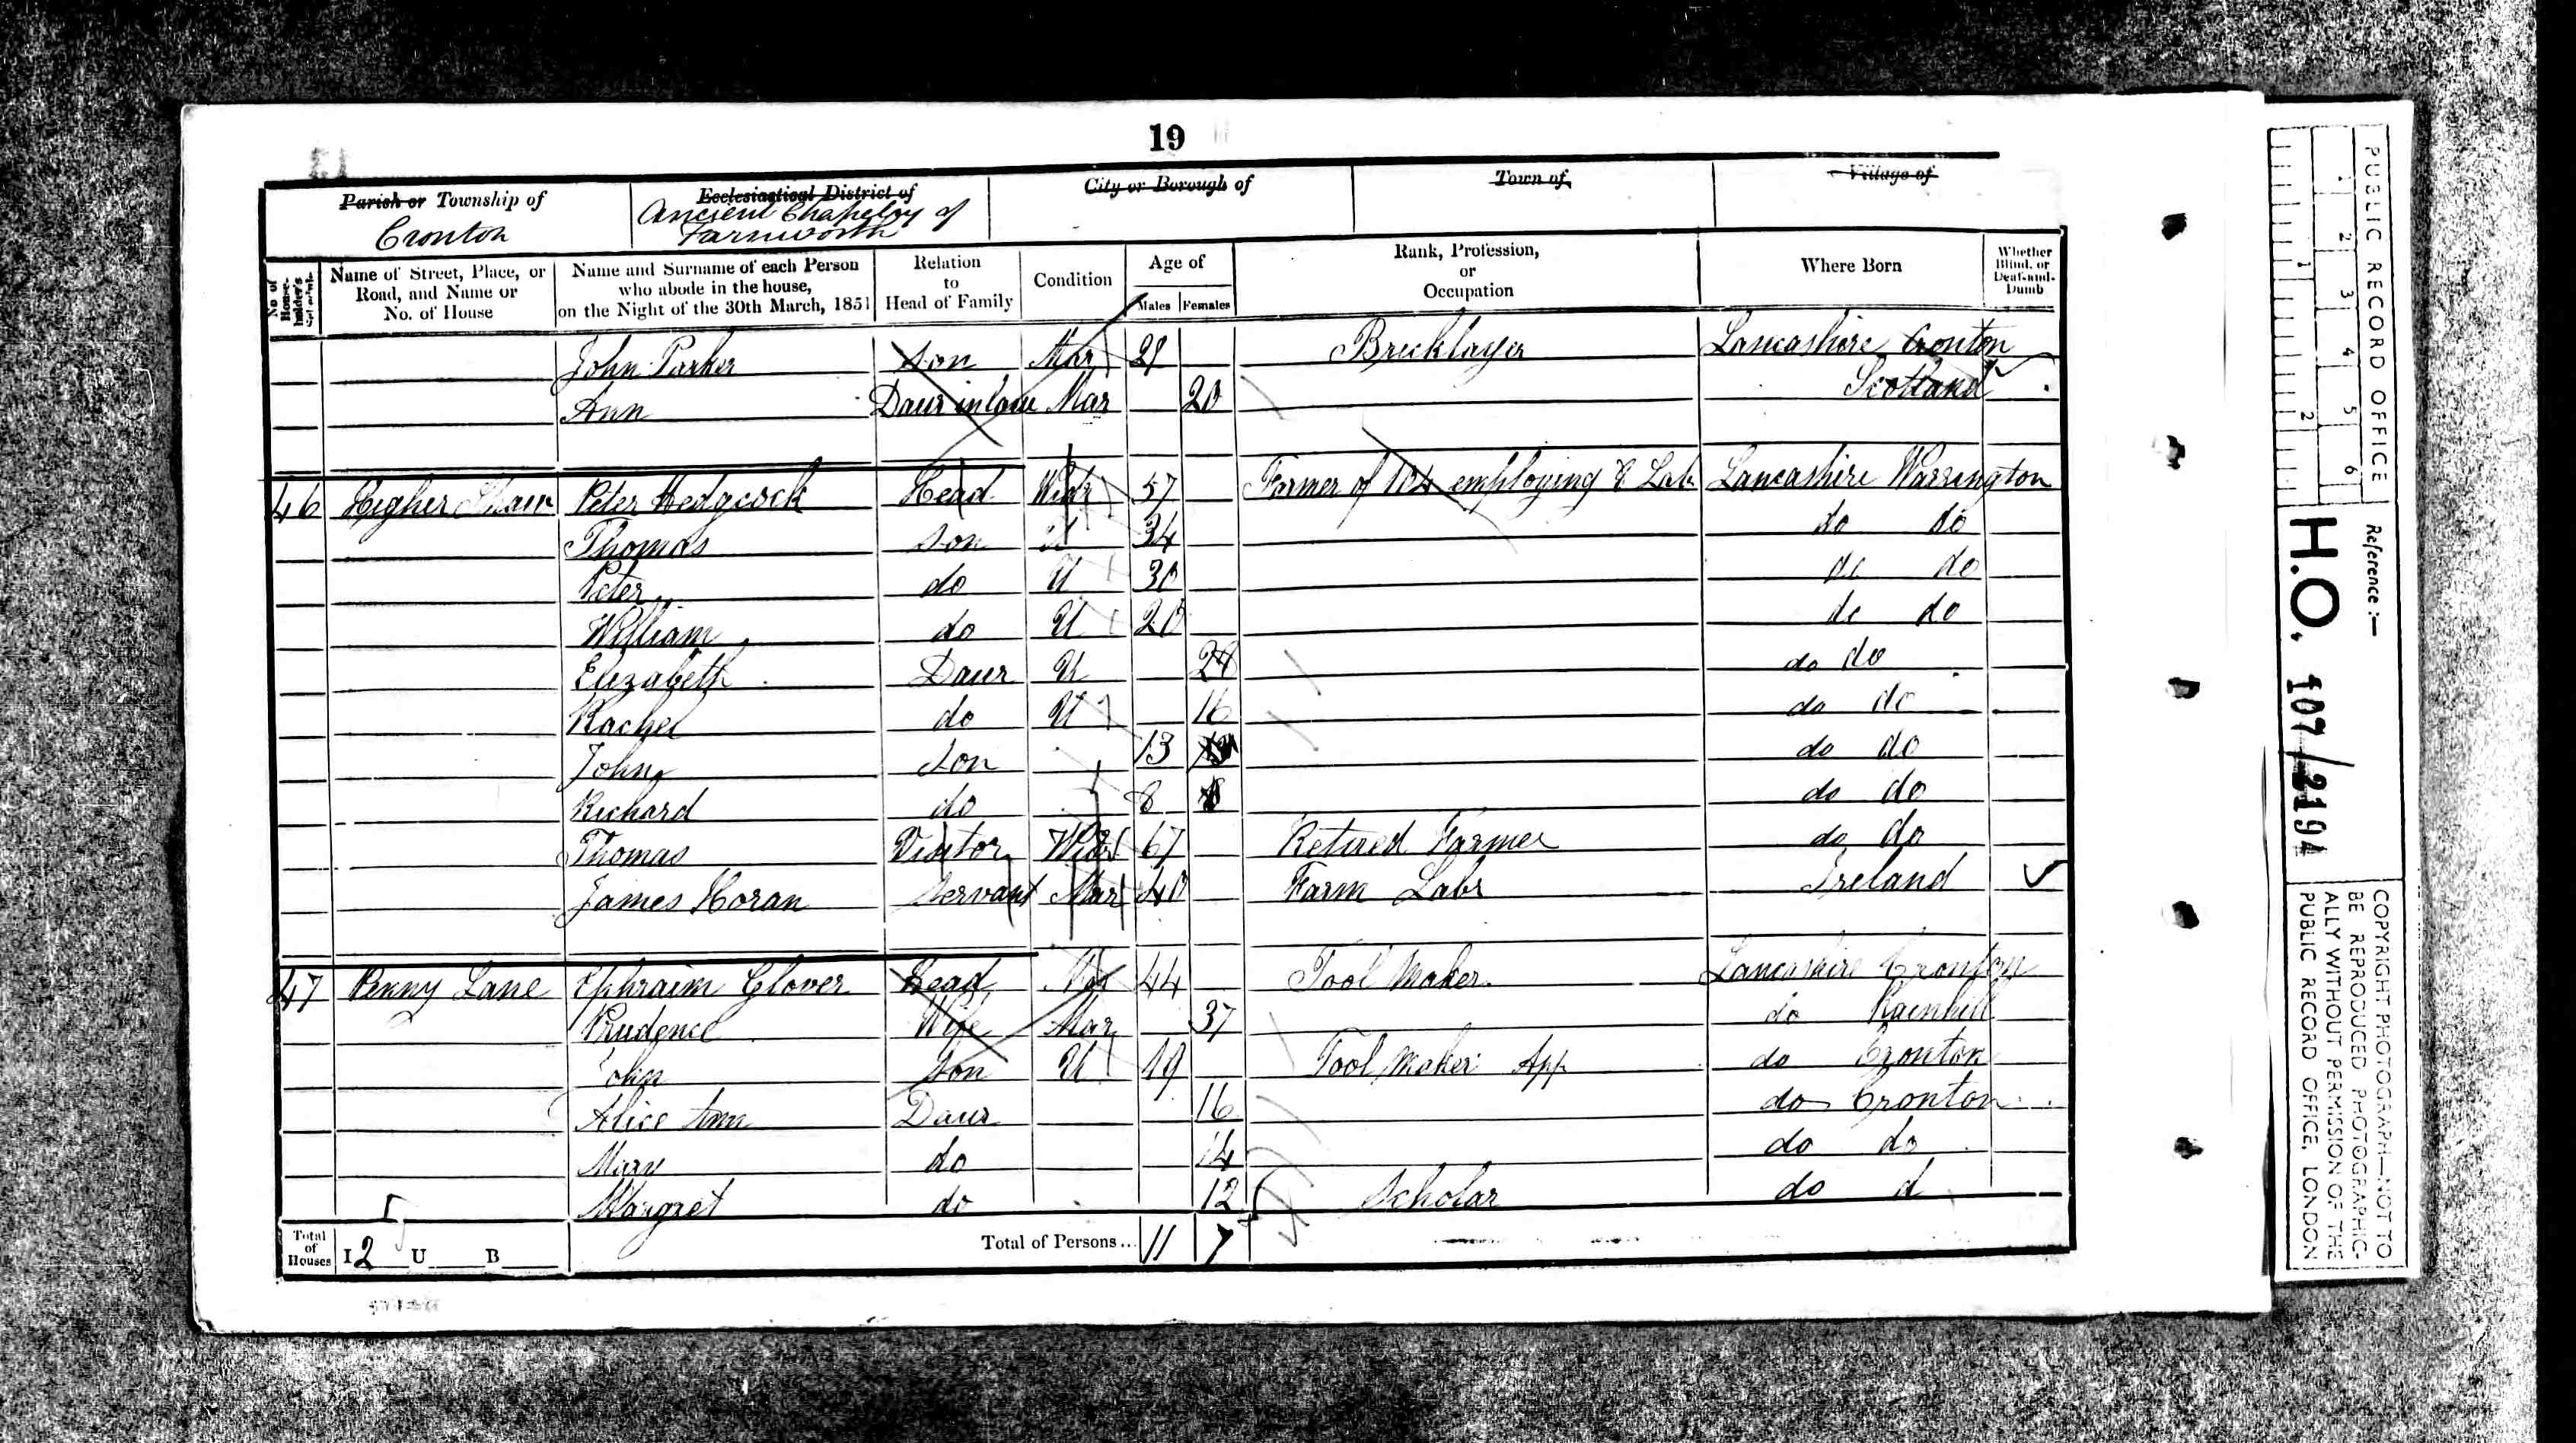 19
Parish or Township of
Cronton
Ecclesiastical District of
Ancient Chapelry of
Farnworth
City or Borough of
Town of
Village of
No. of House-holder's Schedule
Name of Street, Place, or Road, and Name or No. of House
Name and Surname of each Person who abode in the house, on the Night of the 30th March, 1851
Relation to Head of Family
Condition
Age of
Males Females
Rank, Profession, or Occupation
Where Born
Whether Blind, or Deaf-and-Dumb
John Parker son Mar 29 Bricklayer Lancashire Cronton
Ann Daur in law Mar 20 Scotland
46 Higher Shaw Peter Hedgcock Head Widr 57 Farmer of 104 employing 2 Lab Lancashire Warrington
Thomas son U 34 do do
Peter do U 30 do do
William do U 20 do do
Elizabeth Daur U do do
Rachel do U 16 do do
John son 13 do do
Richard do 8 do do
Thomas Visitor Widr 67 Retired Farmer do do
James Horan Servant Mar 40 Farm Labr Ireland
47 Penny Lane Ephraim Glover Head Mar 44 Tool Maker Lancashire Cronton
Prudence Wife Mar 37 do Rainhill
John son U 19 Tool Maker App do Cronton
Alice Ann Daur 16 do Cronton
Mary do 14 do do
Margret do 12 Scholar do d
Total of Houses I 2 U B Total of Persons... 11 7
PUBLIC RECORD OFFICE
1 2 3 4 5 6
1 2
Reference :—
H.O. 107/2194
COPYRIGHT PHOTOGRAPH—NOT TO
BE REPRODUCED PHOTOGRAPHIC-
ALLY WITHOUT PERMISSION OF THE
PUBLIC RECORD OFFICE, LONDON